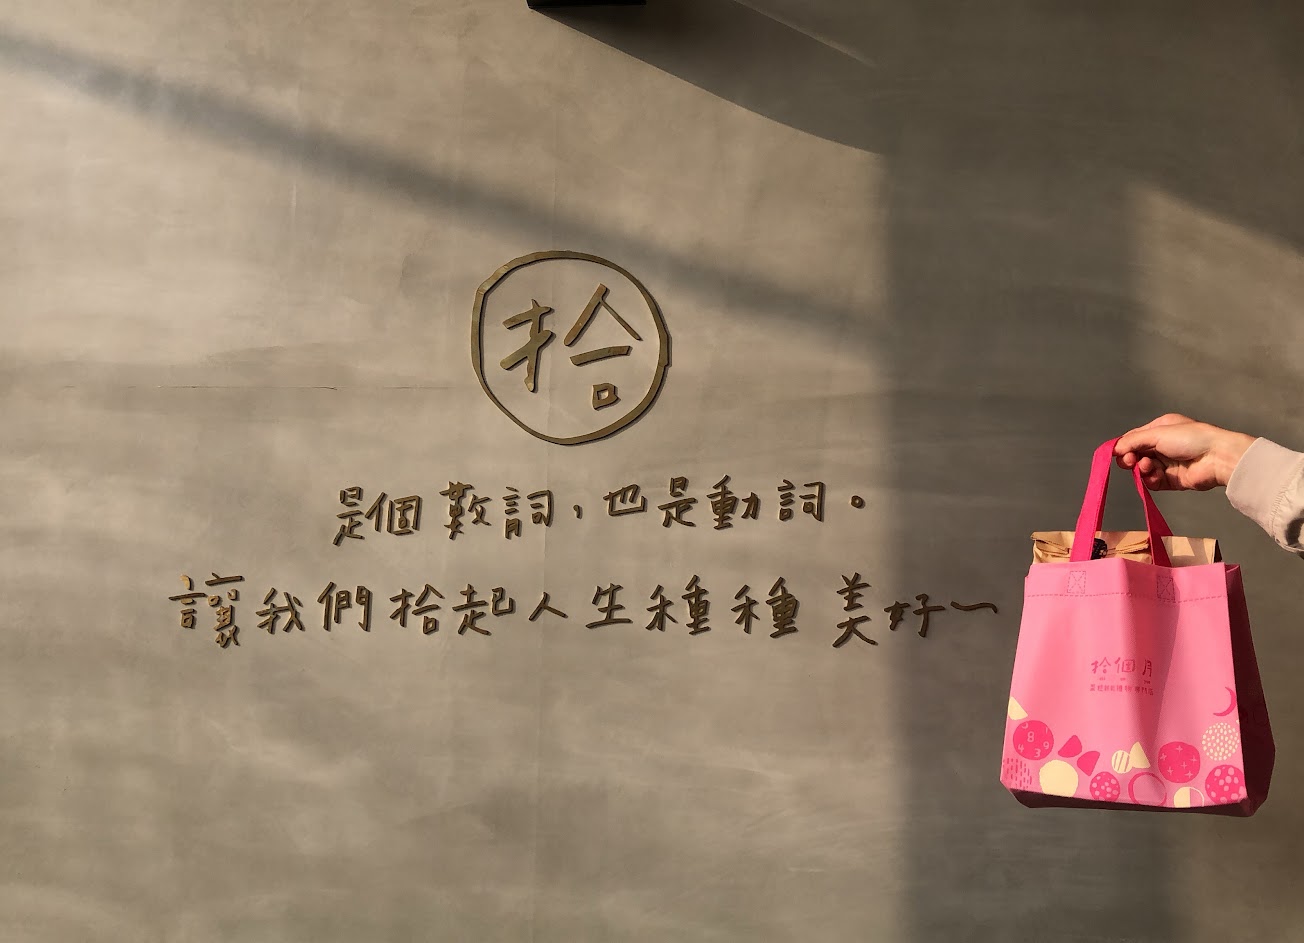 拾
是個數詞，也是動詞。
讓我們拾起人生種種美好～
拾個月